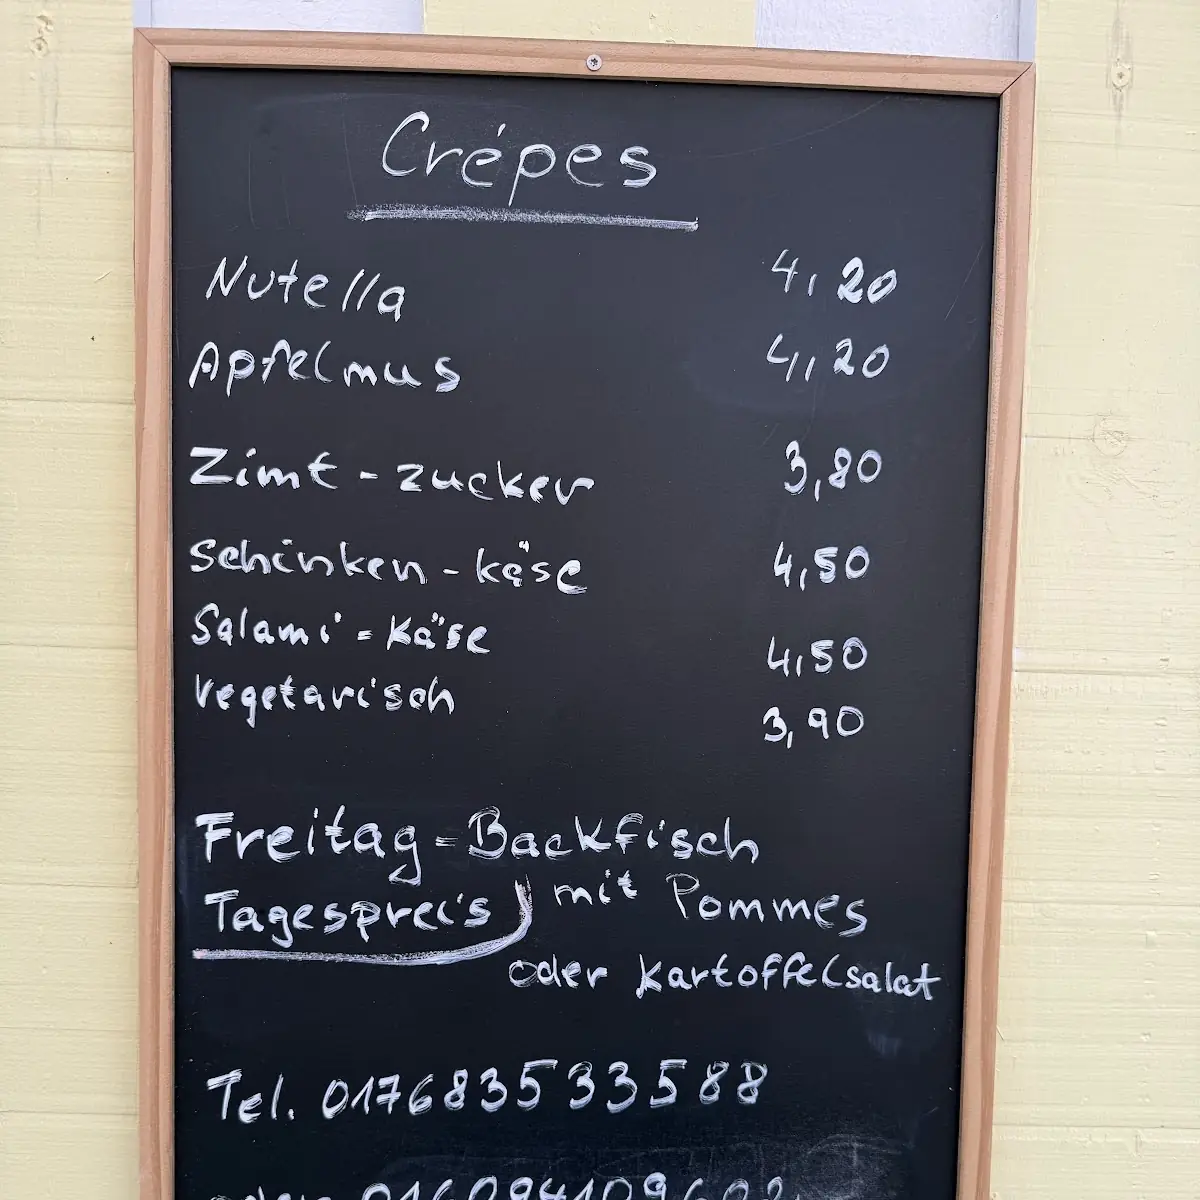 Crépes
Nutella 4,20
Apfelmus 4,20
Zimt-zucker 3,80
Schinken-käse 4,50
Salami-Käse 4,50
Vegetarisch 3,90
Freitag-Backfisch
Tagespreis mit Pommes
oder Kartoffelsalat
Tel. 017683533588
oder